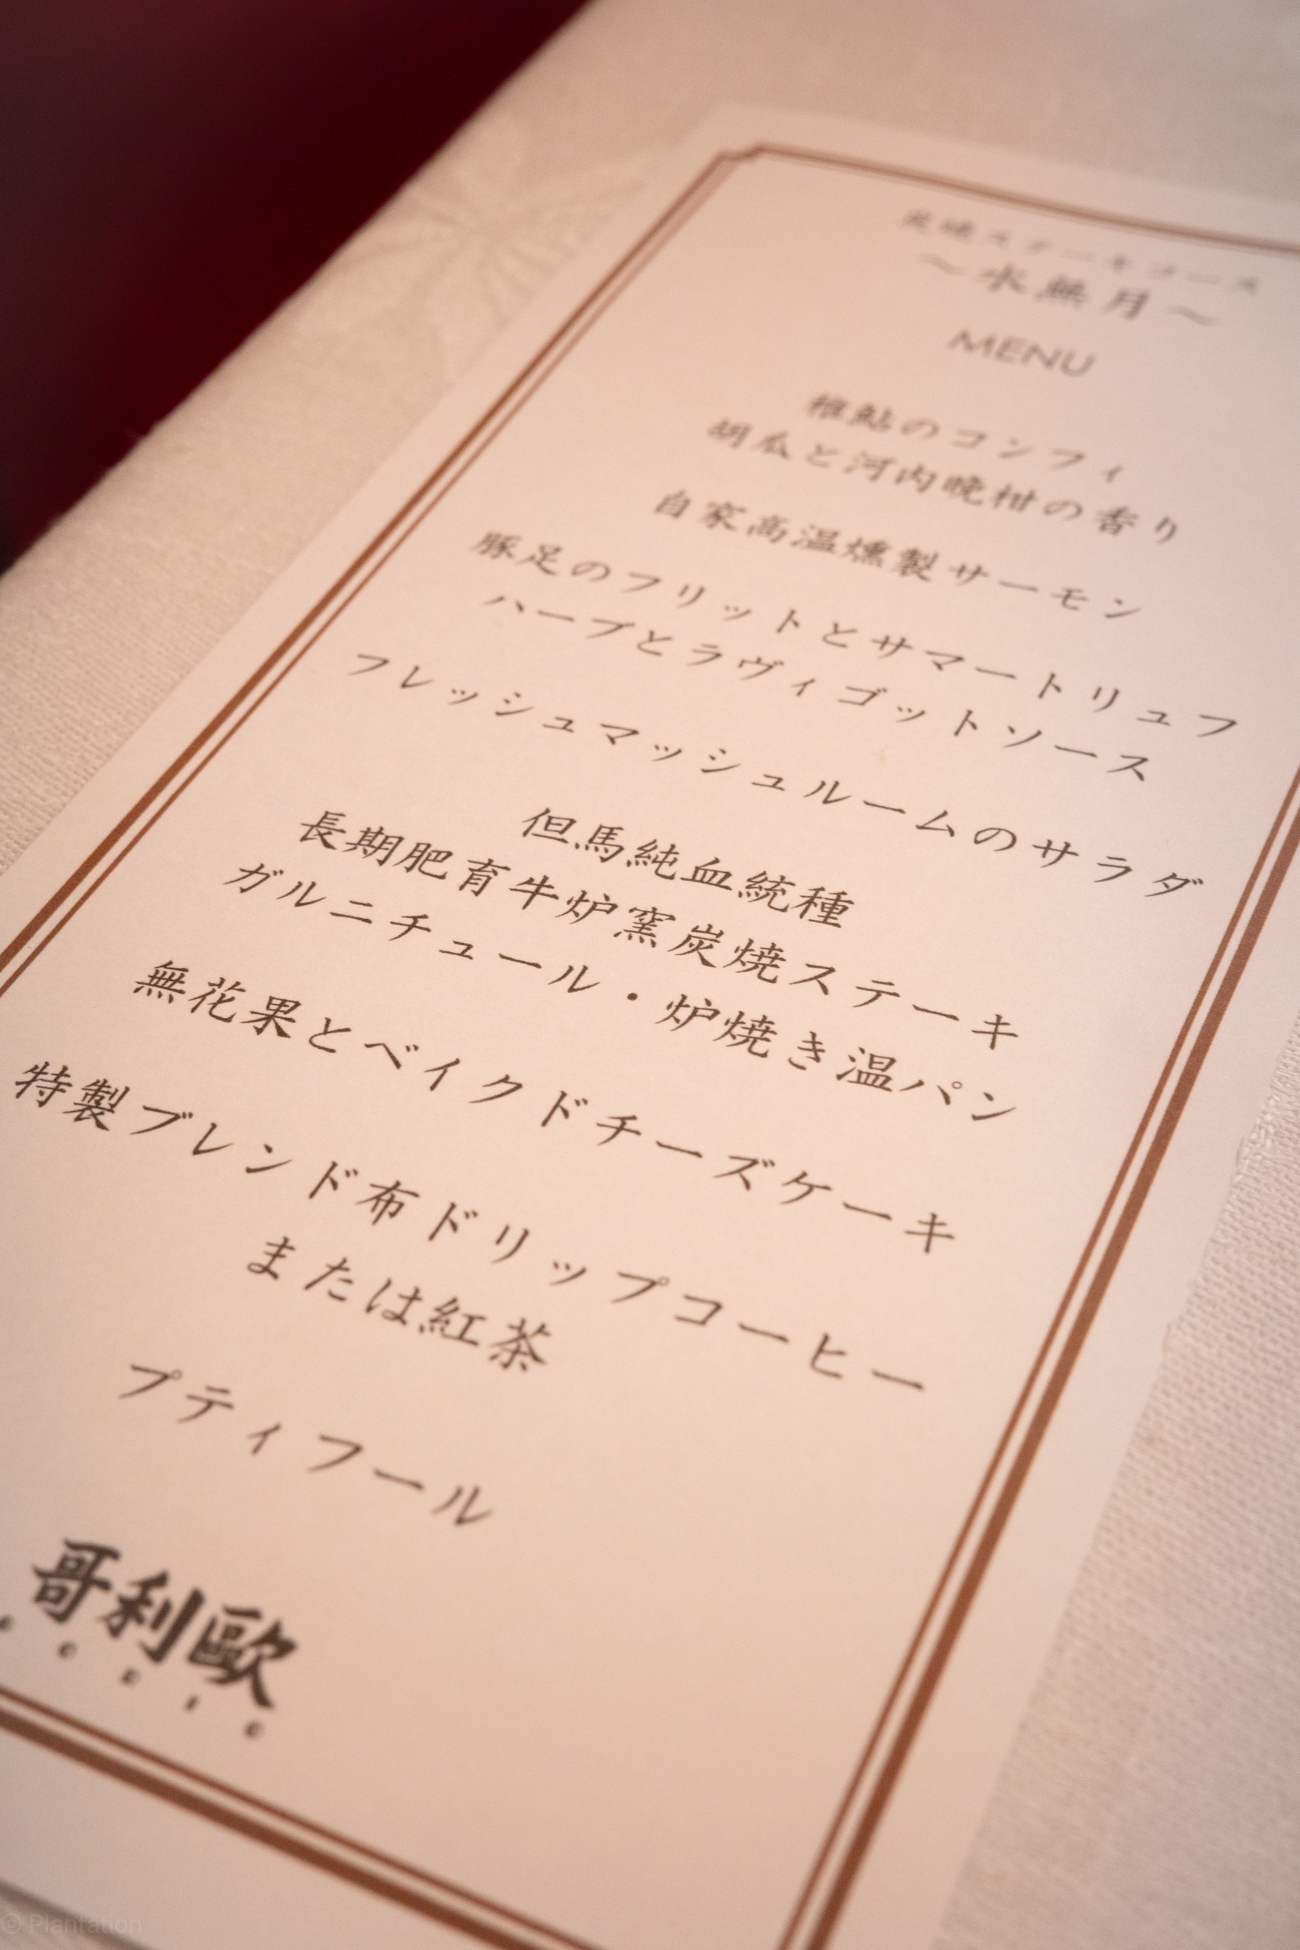 炭焼ステーキコース
～水無月～
MENU
稚鮎のコンフィ
胡瓜と河内晩柑の香り
自家高温燻製サーモン
豚足のフリットとサマートリュフ
ハーブとラヴィゴットソース
フレッシュマッシュルームのサラダ
但馬純血統種
長期肥育牛炉窯炭焼ステーキ
ガルニチュール・炉焼き温パン
無花果とベイクドチーズケーキ
特製ブレンド布ドリップコーヒー
または紅茶
プティフール
哥利歐
© Plantation